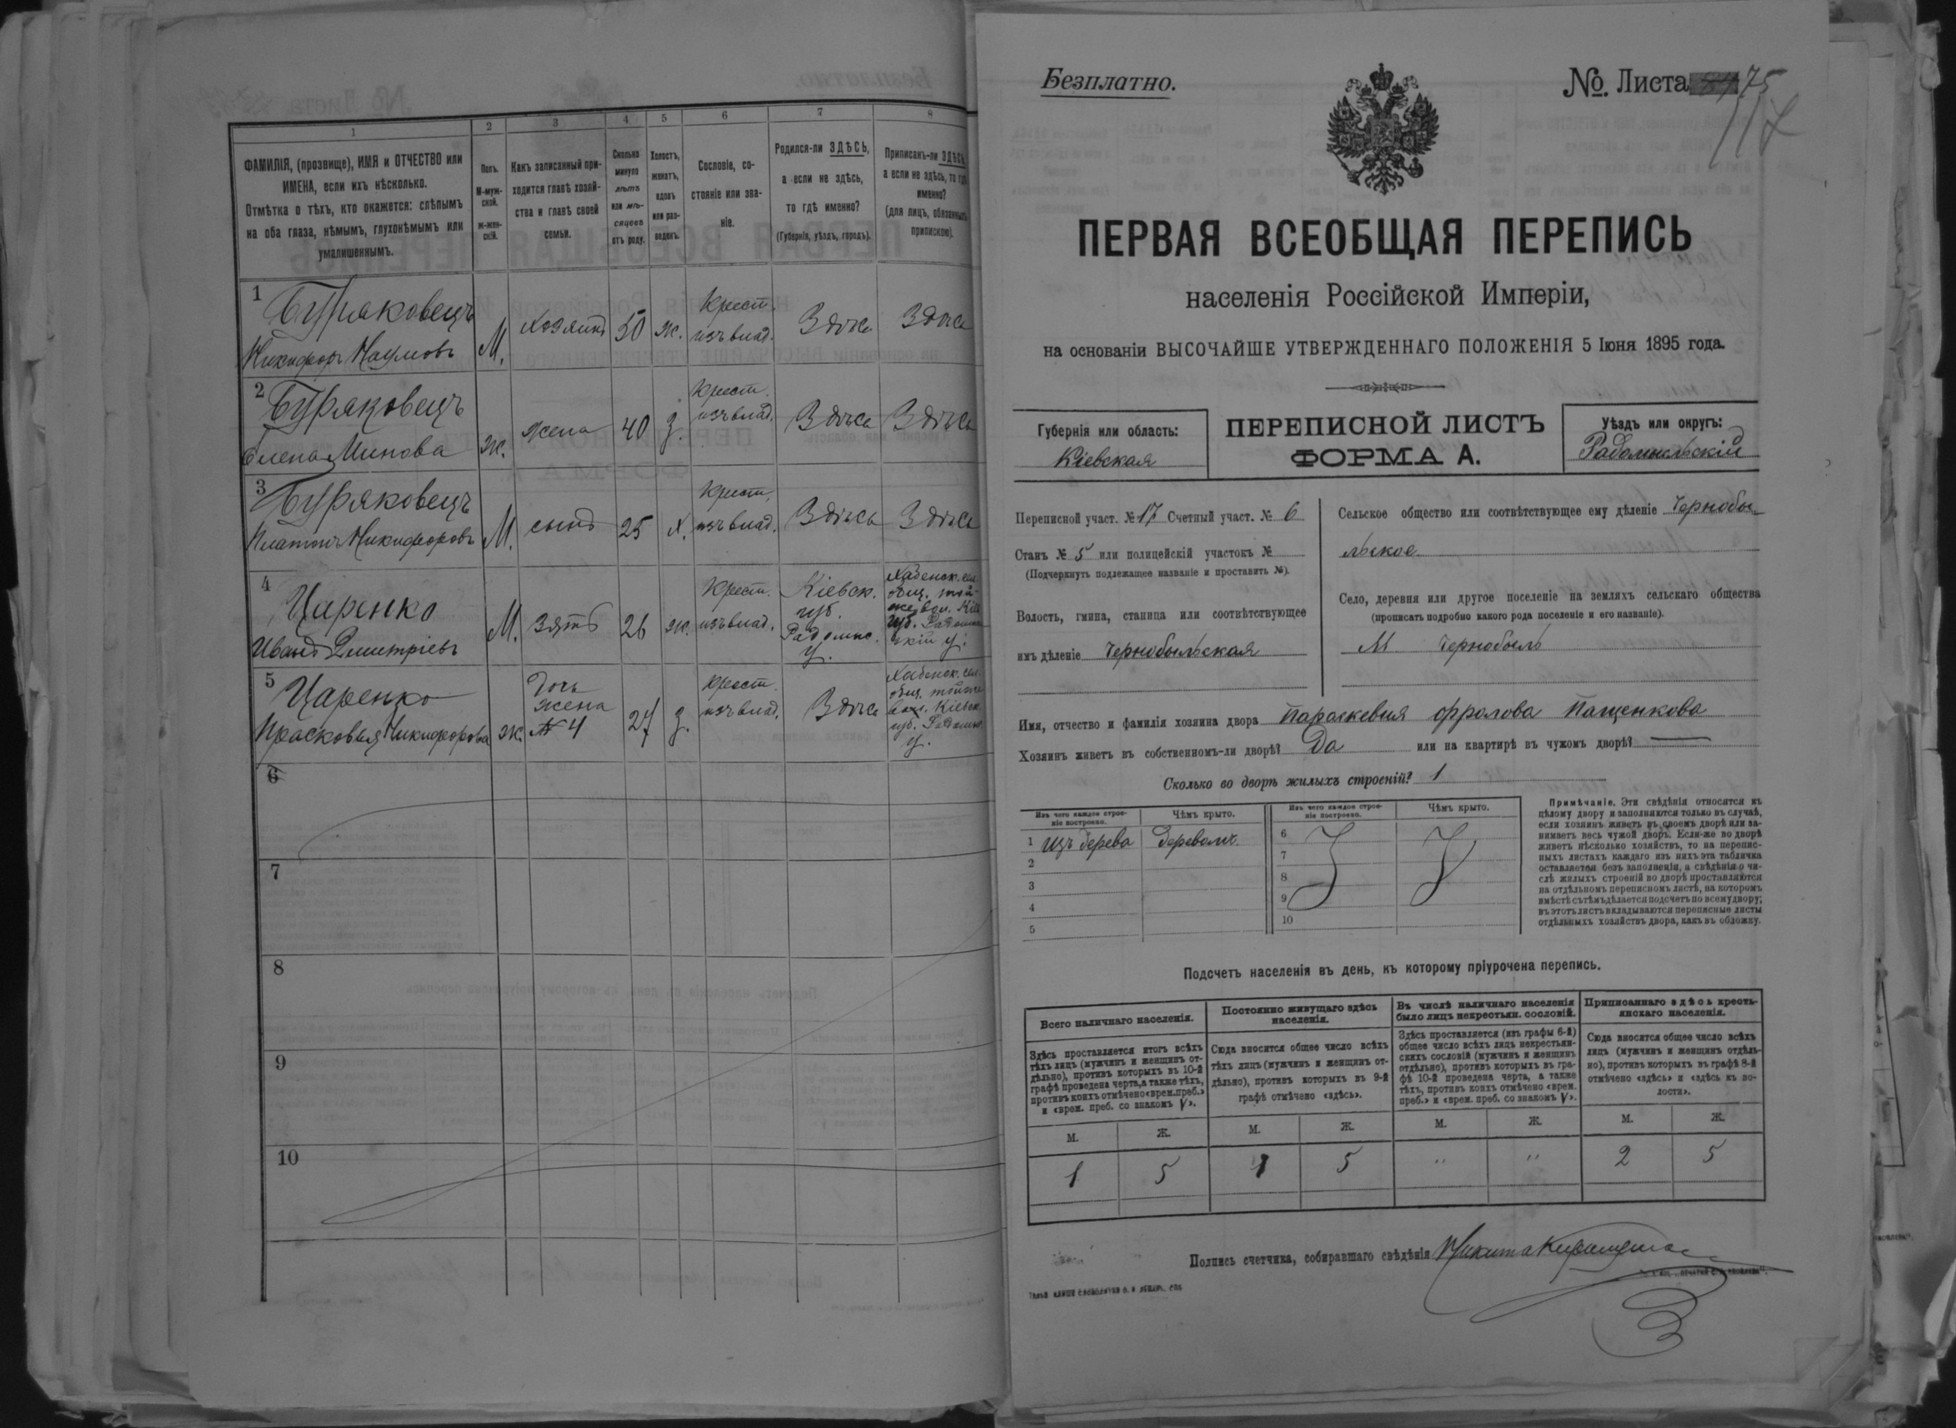 1 2 3 4 5 6 7 8
ФАМИЛІЯ, (прозвище), ИМЯ и ОТЧЕСТВО или
ИМЕНА, если ихъ нѣсколько.
Отмѣтка о тѣхъ, кто окажется: слѣпымъ
на оба глаза, нѣмымъ, глухонѣмымъ или
умалишеннымъ.
Полъ.
М-муж-
ской.
ж-жен-
скій.
Какъ записанный при-
ходится главѣ хозяй-
ства и главѣ своей
семьи.
Сколько
минуло
лѣтъ
или мѣ-
сяцевъ
отъ роду.
Холостъ,
женатъ,
вдовъ
или раз-
веденъ.
Сословіе, со-
стояніе или зва-
ніе.
Родился-ли ЗДѢСЬ,
а если не здѣсь,
то гдѣ именно?
(Губернія, уѣздъ, городъ).
Приписанъ-ли ЗДѢСЬ,
а если не здѣсь, то гдѣ
именно?
(для лицъ, обязанныхъ
припискою).
1 Буряковецъ
Никифоръ Наумовъ
М. хозяинъ 50 ж. Крест. изъ влад. Здѣсь Здѣсь
2 Буряковецъ
Елена Минова
ж. жена 40 з. Крест. изъ влад. Здѣсь Здѣсь
3 Буряковецъ
Платонъ Никифоровъ
М. сынъ 25 х. Крест. изъ влад. Здѣсь Здѣсь
4 Царенко
Иванъ Дмитріевъ
М. Зять 26 ж. Крест. изъ влад. Кіевск.
губ.
Радомыс.
у.
5 Царенко
Прасковья Никифорова
ж. Дочь
жена
№ 4
27 з. Крест. изъ влад. Здѣсь
6
7
8
9
10
Безплатно.
№. Листа 75
117
ПЕРВАЯ ВСЕОБЩАЯ ПЕРЕПИСЬ
населенія Россійской Имперіи,
на основаніи ВЫСОЧАЙШЕ УТВЕРЖДЕННАГО ПОЛОЖЕНІЯ 5 Іюня 1895 года.
Губернія или область:
Кіевская
ПЕРЕПИСНОЙ ЛИСТЪ
ФОРМА А.
Уѣздъ или округъ:
Радомысльскій
Переписной участ. № 17 Счетный участ. № 6
Станъ № 5 или полицейскій участокъ №
(Подчеркнуть подлежащее названіе и проставить №).
Волость, гмина, станица или соотвѣтствующее
имъ дѣленіе Чернобыльская
Сельское общество или соотвѣтствующее ему дѣленіе Чернобы-
льское
Село, деревня или другое поселеніе на земляхъ сельскаго общества
(прописать подробно какого рода поселеніе и его названіе).
М Чернобыль
Имя, отчество и фамилія хозяина двора Параскевия Фролова Пащенкова
Хозяинъ живетъ въ собственномъ-ли дворѣ? Да или на квартирѣ въ чужомъ дворѣ? —
Сколько во дворѣ жилыхъ строеній? 1
Изъ чего каждое строе-
ніе построено.
Чѣмъ крыто.
Изъ чего каждое строе-
ніе построено.
Чѣмъ крыто.
1 изъ дерева деревомъ.
2
3
4
5
6
7
8
9
10
Примѣчаніе. Эти свѣдѣнія относятся къ
цѣлому двору и заполняются только въ случаѣ,
если хозяинъ живетъ въ своемъ дворѣ или за-
нимаетъ весь чужой дворъ. Если-же во дворѣ
живетъ нѣсколько хозяйствъ, то на перепис-
ныхъ листахъ каждаго изъ нихъ эта табличка
оставляется безъ заполненія, а свѣдѣнія о чи-
слѣ жилыхъ строеній во дворѣ проставляются
на отдѣльномъ переписномъ листѣ, на которомъ
вмѣстѣ съ тѣмъ дѣлается подсчетъ по всему двору;
въ этотъ листъ вкладываются переписные листы
отдѣльныхъ хозяйствъ двора, какъ въ обложку.
Подсчетъ населенія въ день, къ которому пріурочена перепись.
Всего наличнаго населенія.
Здѣсь проставляется итогъ всѣхъ
тѣхъ лицъ (мужчинъ и женщинъ от-
дѣльно), противъ которыхъ въ 10-й
графѣ проведена черта, а также тѣхъ,
противъ коихъ отмѣчено «врем. преб.»
и «врем. преб. со знакомъ V».
Постоянно живущаго здѣсь
населенія.
Сюда вносится общее число всѣхъ
тѣхъ лицъ (мужчинъ и женщинъ от-
дѣльно), противъ которыхъ въ 9-й
графѣ отмѣчено «здѣсь».
Въ числѣ наличнаго населенія
было лицъ некрестьян. сословій.
Здѣсь проставляется (изъ графы 6-й)
общее число всѣхъ лицъ некрестьян-
скихъ сословій (мужчинъ и женщинъ
отдѣльно), противъ которыхъ въ гра-
фѣ 10-й проведена черта, а также
тѣхъ, противъ коихъ отмѣчено «врем.
преб.» и «врем. преб. со знакомъ V».
Приписаннаго здѣсь кресть-
янскаго населенія.
Сюда вносится общее число всѣхъ
лицъ (мужчинъ и женщинъ отдѣль-
но), противъ которыхъ въ графѣ 8-й
отмѣчено «здѣсь» и «здѣсь къ во-
лости».
М. Ж. М. Ж. М. Ж. М. Ж.
1 5 1 5 " " 2 5
Подпись счетчика, собиравшаго свѣдѣнія Никита